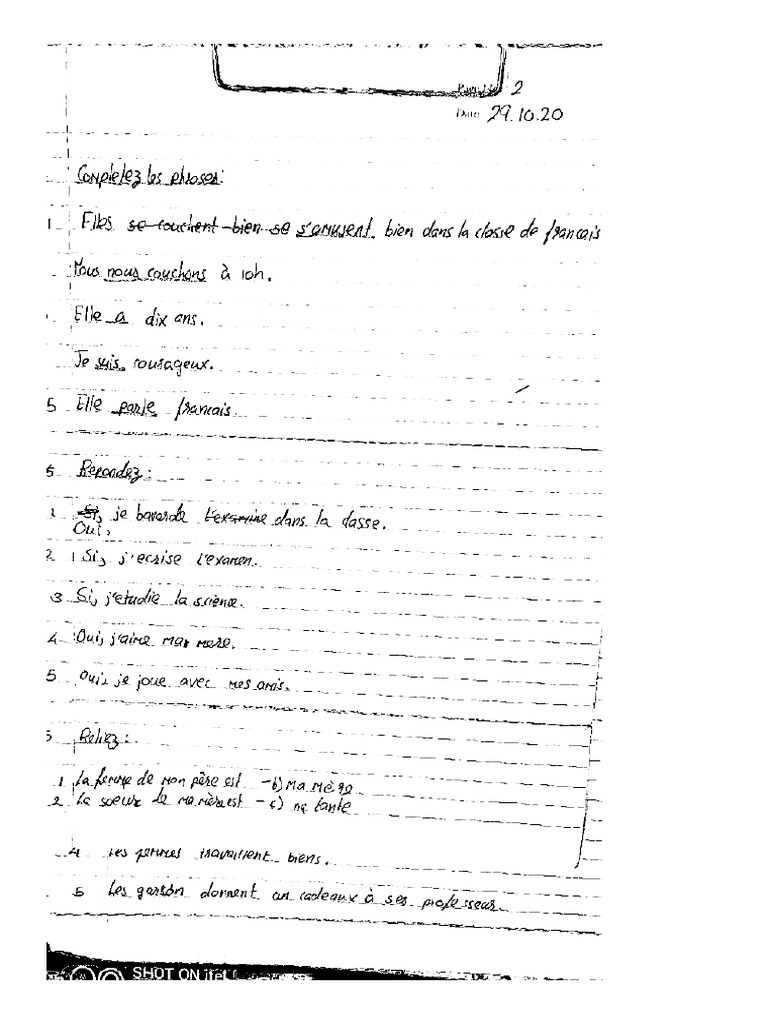 2
Date 29.10.20
Completez les phrases:
1 Elles se couchent bien se s'amusent bien dans la classe de francais
Nous nous couchons à 10h.
Elle a dix ans.
Je suis courageux.
5 Elle parle francais.
5 Repondez:
1 Si, je bavarde l'examine dans la classe.
Oui,
2 Si, j'ecrise l'examen.
3 Si, j'etudie la science.
4 Oui, j'aime mere.
5 Oui, je joue avec mes amis.
5 Reliez:
1 La femme de mon père est - b) ma mère
2 La soeur de ma mère est - c) ma tante
4 Les femmes travaillent biens.
5 Les garsón donnent un cadeaux à ses professeur.
SHOT ON itel